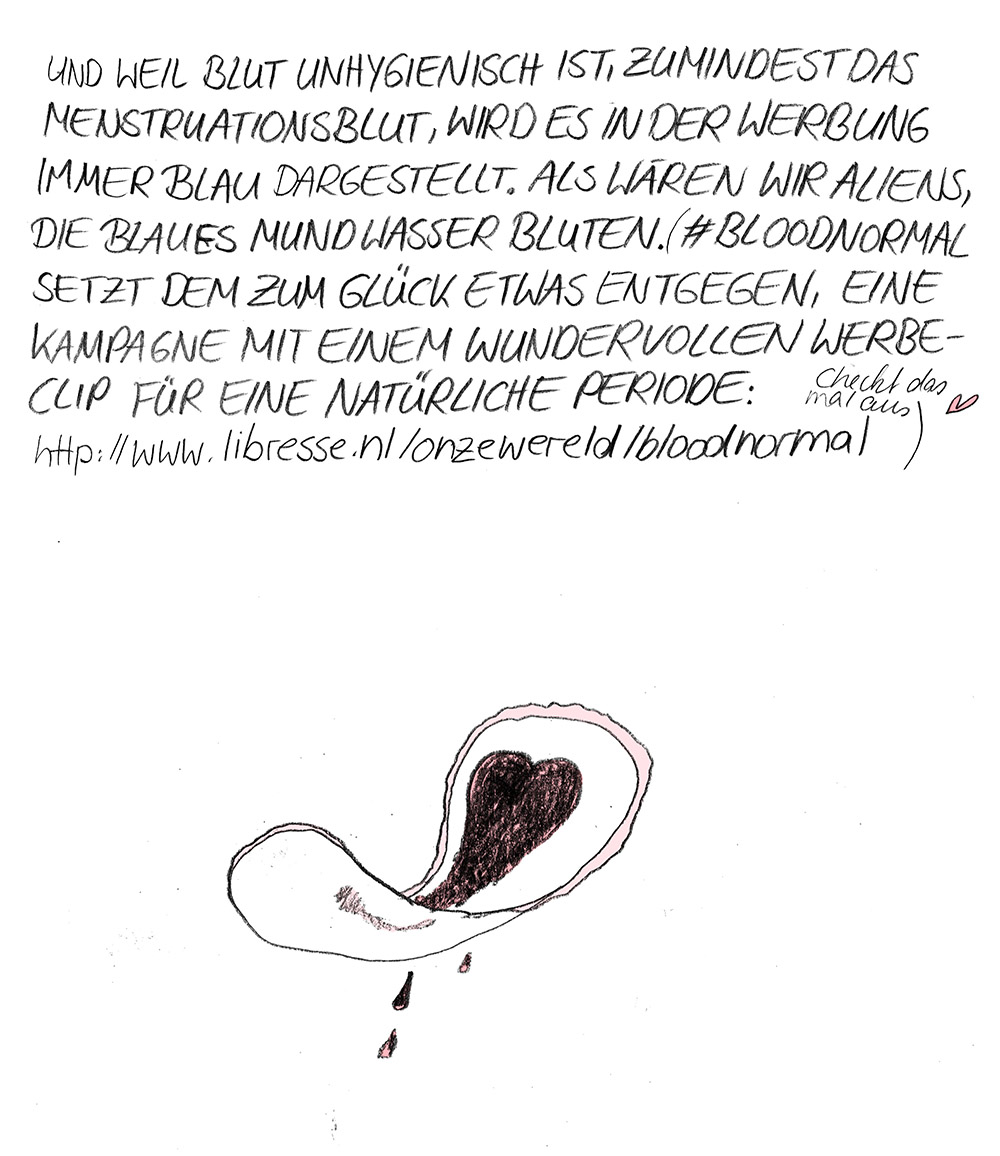 UND WEIL BLUT UNHYGIENISCH IST, ZUMINDEST DAS
MENSTRUATIONSBLUT, WIRD ES IN DER WERBUNG
IMMER BLAU DARGESTELLT. ALS WÄREN WIR ALIENS,
DIE BLAUES MUNDWASSER BLUTEN. (#BLOODNORMAL
SETZT DEM ZUM GLÜCK ETWAS ENTGEGEN, EINE
KAMPAGNE MIT EINEM WUNDERVOLLEN WERBE-
CLIP FÜR EINE NATÜRLICHE PERIODE:
checkt das
mal aus
http://www.libresse.nl/onzewereld/bloodnormal )